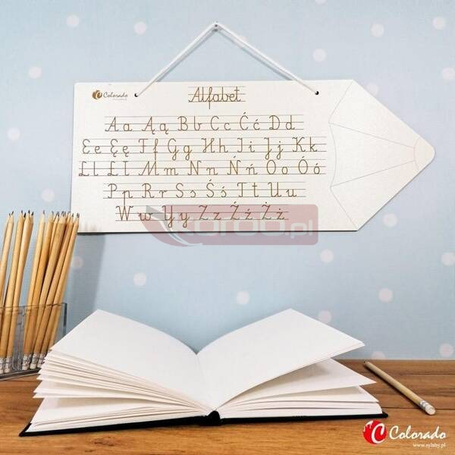 Colorado
Alfabet
Aa Ąą Bb Cc Ćć Dd
Ee Ęę Ff Gg Hh Ii Jj Kk
Ll Łł Mm Nn Ńń Oo Óó
Pp Rr Ss Śś Tt Uu
Ww Yy Zz Źź Żż
Colorado